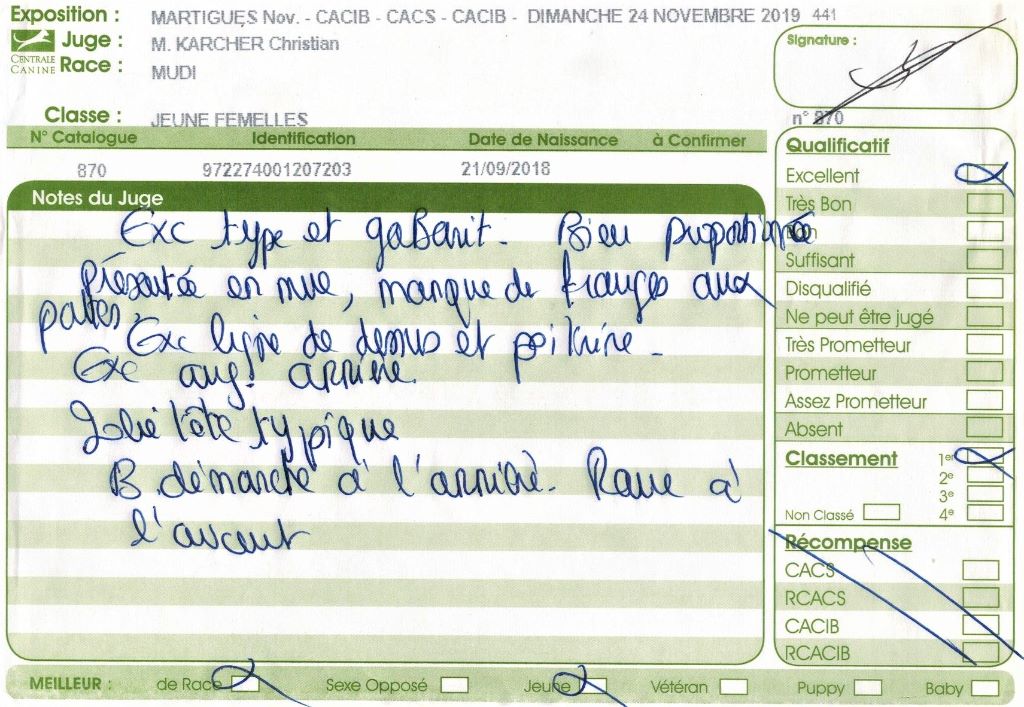 Exposition : MARTIGUES Nov. - CACIB - CACS - CACIB - DIMANCHE 24 NOVEMBRE 2019 441
Juge : M. KARCHER Christian
CENTRALE CANINE
Race : MUDI
Classe : JEUNE FEMELLES
Signature :
n° 870
N° Catalogue Identification Date de Naissance à Confirmer
870 972274001207203 21/09/2018
Notes du Juge
Exc type et gabarit. Bien proportionnée
Présentée en mue, manque de franges aux
pattes.
Exc ligne de dessus et poitrine.
Exc ang. arrière.
Jolie tête typique
B démarche à l'arrière. à
l'avant
Qualificatif
Excellent
Très Bon
Bon
Suffisant
Disqualifié
Ne peut être jugé
Très Prometteur
Prometteur
Assez Prometteur
Absent
Classement 1er
2e
3e
Non Classé 4e
Récompense
CACS
RCACS
CACIB
RCACIB
MEILLEUR : de Race Sexe Opposé Jeune Vétéran Puppy Baby